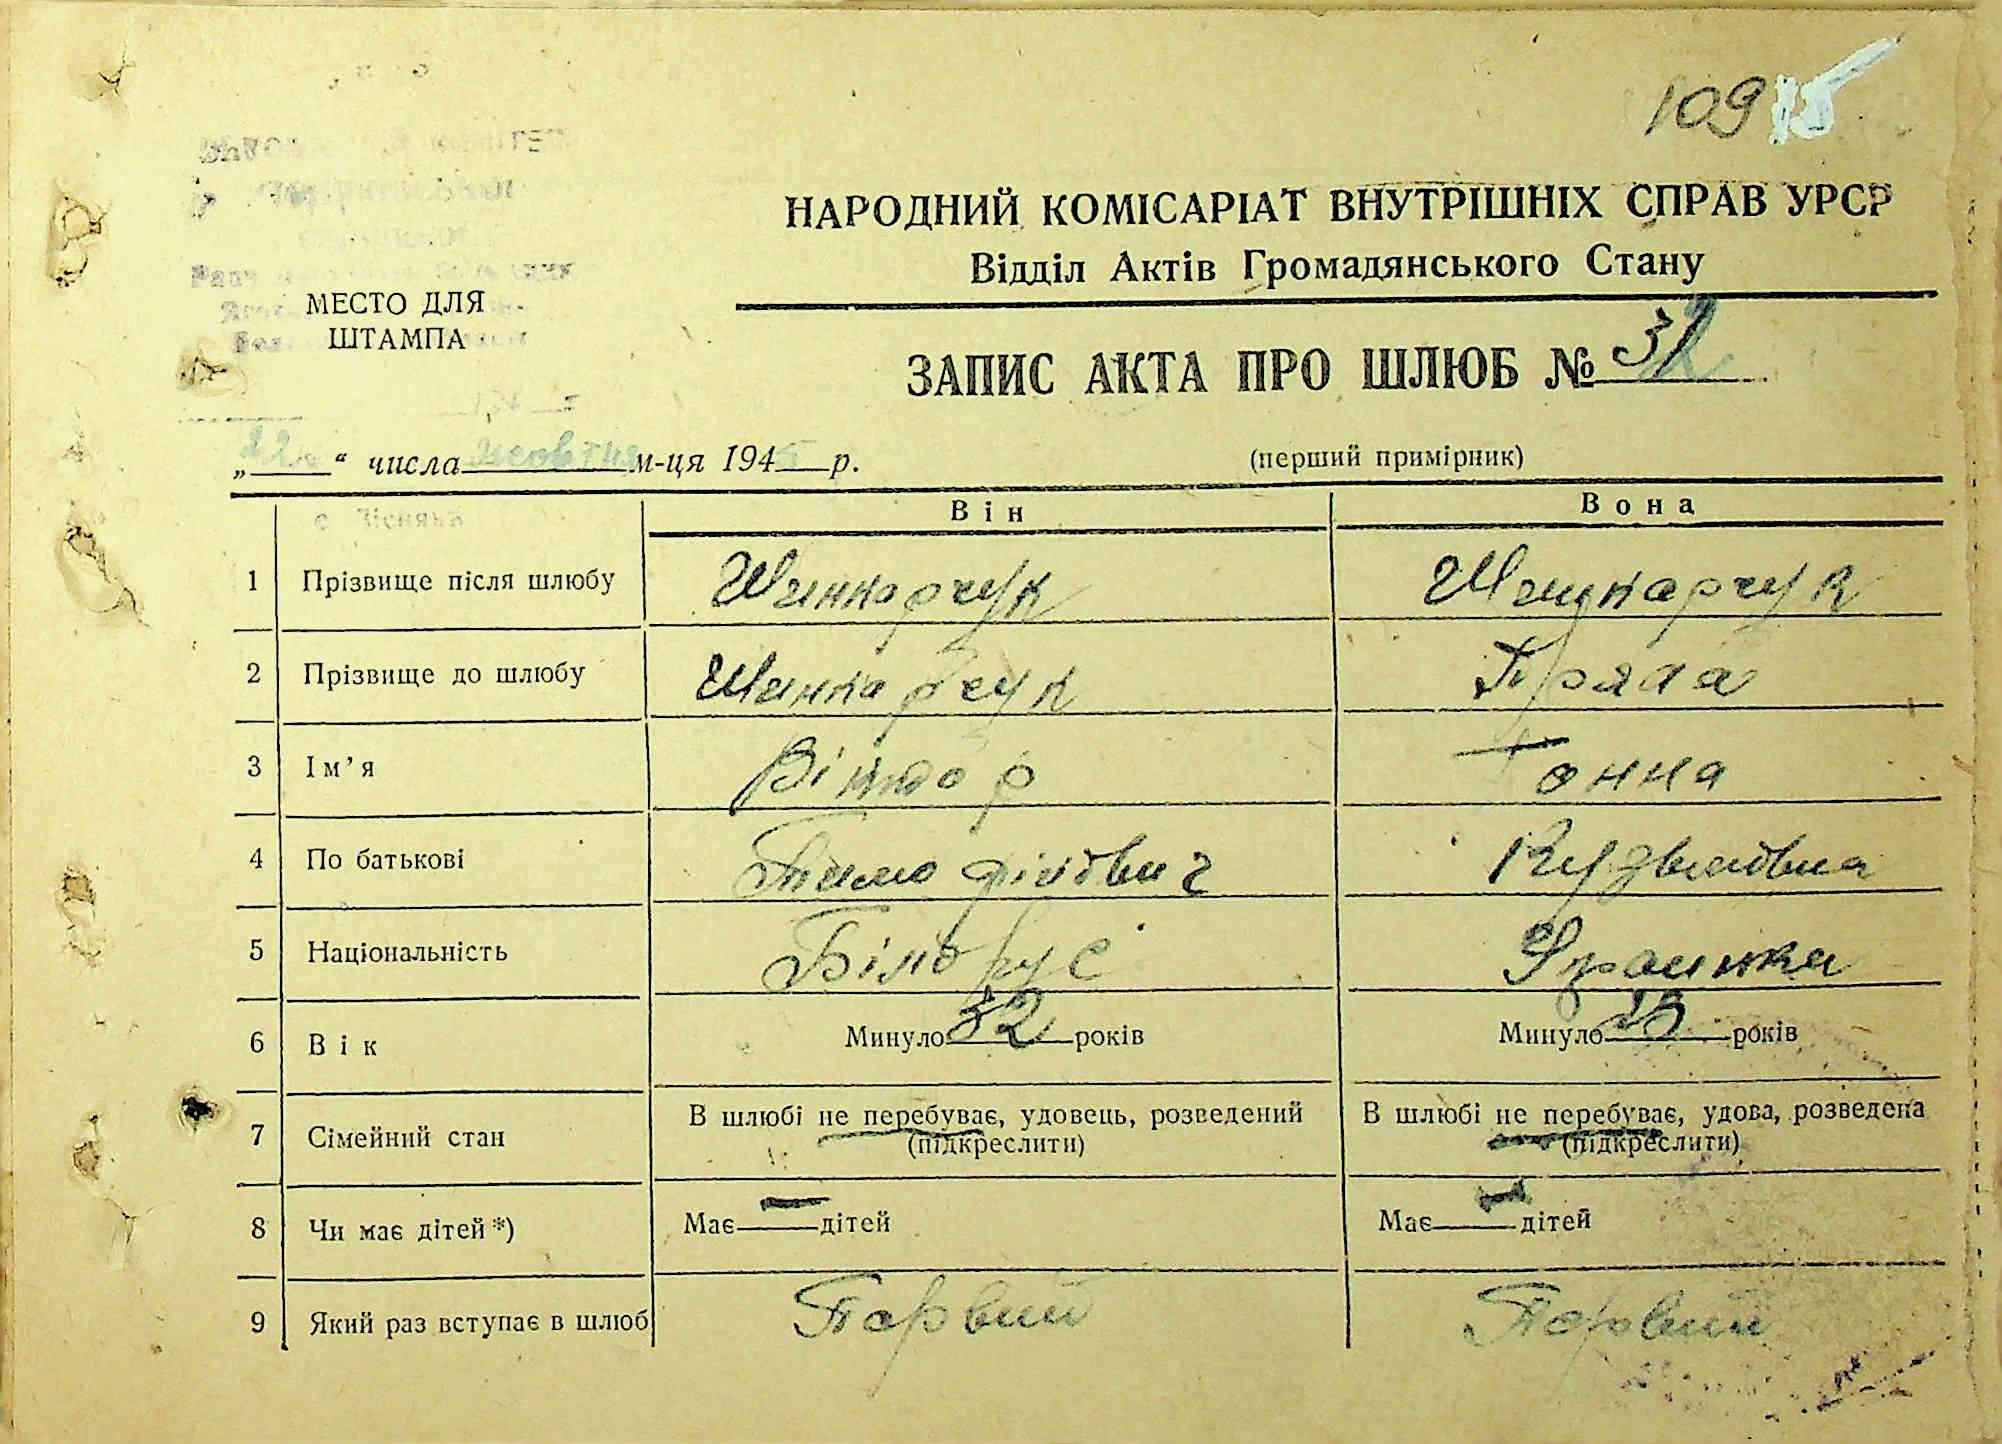 109
НАРОДНИЙ КОМІСАРІАТ ВНУТРІШНІХ СПРАВ УРСР
Відділ Актів Громадянського Стану
МЕСТО ДЛЯ
ШТАМПА
ЗАПИС АКТА ПРО ШЛЮБ № 32
„22“ числа Жовтня м-ця 1945 р.
(перший примірник)
Він Вона
1 Прізвище після шлюбу Шинкарчук Шинкарчук
2 Прізвище до шлюбу Шинкарчук
3 Ім’я Віктор Ганна
4 По батькові Тимофійович
5 Національність Білорус Українка
6 Вік Минуло 32 років Минуло 23 років
7 Сімейний стан В шлюбі не перебуває, удовець, розведений В шлюбі не перебуває, удова, розведена
(підкреслити) (підкреслити)
8 Чи має дітей *) Має — дітей Має — дітей
9 Який раз вступає в шлюб Первий Первий